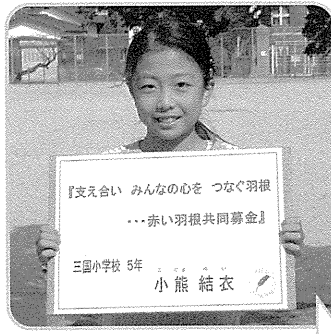 『支え合い みんなの心を つなぐ羽根
…赤い羽根共同募金』
三国小学校 5年
こぐま ゆい
小熊 結衣